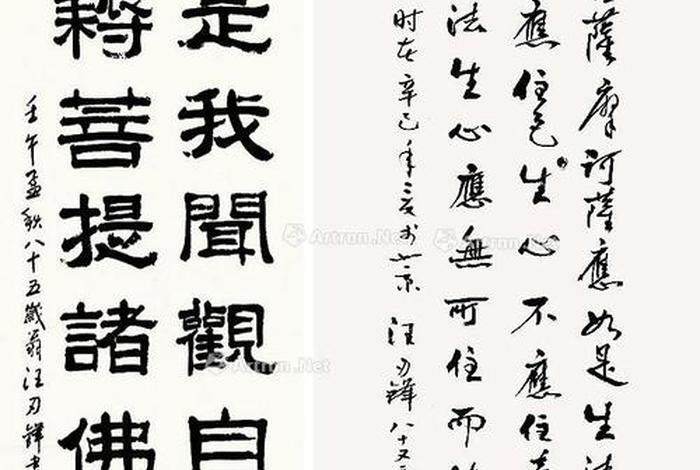 薩摩訶薩應如是生清
應住色生心不應住
法生心應無所住而
时在辛巳年之夏於北京 汪刃鋒八十又
是我聞觀自
耨菩提諸佛
壬午孟秋八十五歲翁汪刃鋒書
Artron.Net
Artron.Net
Artron.Net